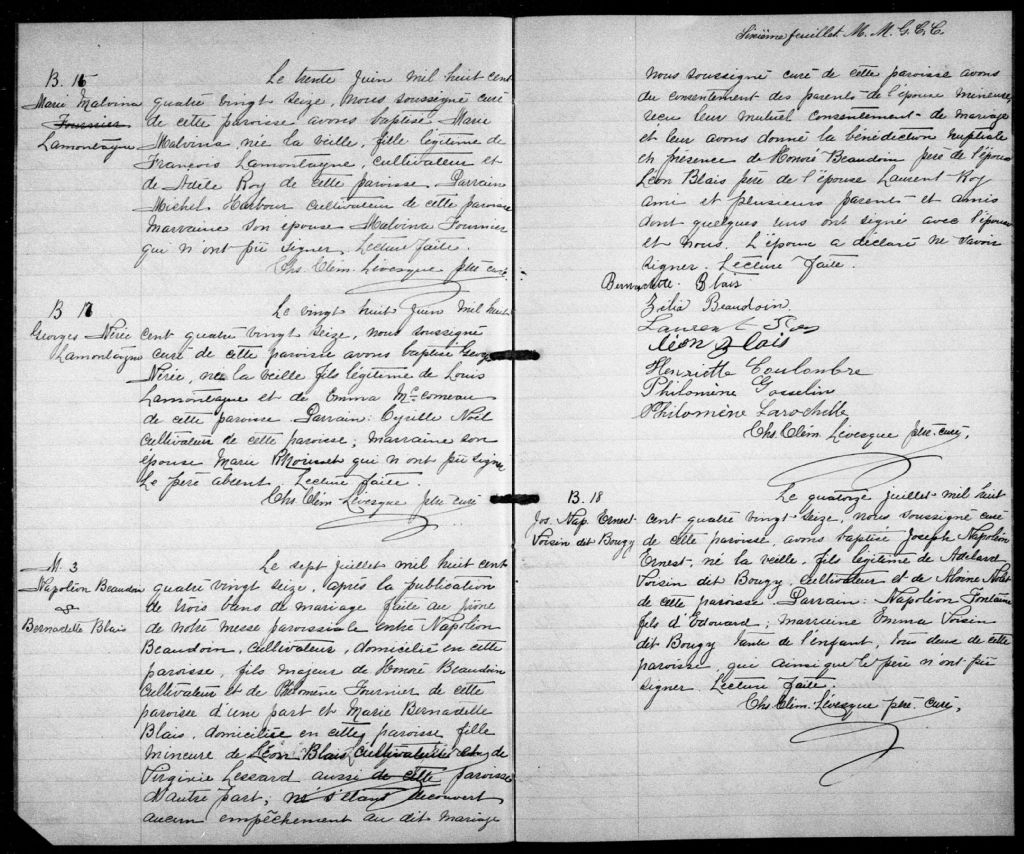 B. 16
Marie Malvina
Fournier
Lamontagne
Le trente Juin mil huit cent
quatre vingt seize, nous soussigné curé
de cette paroisse avons baptisé Marie
Malvina, née la veille, fille légitime de
François Lamontagne, cultivateur et
de Adèle Roy de cette paroisse. Parrain
Michel Harbour cultivateur de cette paroisse
Marraine son épouse Malvina Fournier
qui n'ont pu signer. Lecture faite.
Chs. Clém. Lévesque ptre curé
B 17
Georges Nérée
Lamontagne
Le vingt huit Juin mil huit
cent quatre vingt seize, nous soussigné
curé de cette paroisse avons baptisé Georges
Nérée, né la veille fils légitime de Louis
Lamontagne et de Emma McComeau
de cette paroisse. Parrain: Cyrille Noël
cultivateur de cette paroisse; Marraine son
épouse Marie qui n'ont pu signer
Le père absent. Lecture faite.
Chs. Clém. Lévesque ptre curé
M. 3
Napoléon Beaudoin
&
Bernadette Blais
Le sept juillet mil huit cent
quatre vingt seize, après la publication
de trois bans de mariage faite au prône
de notre messe paroissiale entre Napoléon
Beaudoin, cultivateur, domicilié en cette
paroisse, fils majeur de Honoré Beaudoin
cultivateur et de Philomène Fournier de cette
paroisse d'une part et Marie Bernadette
Blais, domiciliée en cette paroisse, fille
mineure de Léon Blais cultivateur et de
Virginie Lessard aussi de cette paroisse
d'autre part; ne s'étant découvert
aucun empêchement au dit mariage
Sixième feuillet M. M. G. C. C.
nous soussigné curé de cette paroisse avons
du consentement des parents de l'épouse mineure,
reçu leur mutuel consentement de mariage
et leur avons donné la bénédiction nuptiale
en présence de Honoré Beaudoin père de l'époux
Léon Blais père de l'épouse Laurent Roy
ami et plusieurs parents et amis
dont quelques uns ont signé avec l'épouse
et nous. L'époux a déclaré ne savoir
signer. Lecture faite.
Bernadette Blais
Zélia Beaudoin
Laurent Roy
Léon Blais
Henriette Coulombre
Philomène Gosselin
Philomène Larochelle
Chs. Clém. Lévesque ptre. curé,
B. 18
Jos. Nap. Ernest
Voisin dit Bougy
Le quatorze juillet mil huit
cent quatre vingt seize, nous soussigné curé
de cette paroisse, avons baptisé Joseph Napoléon
Ernest, né la veille, fils légitime de Adélard
Voisin dit Bougy, cultivateur et de Alvine Nolet
de cette paroisse. Parrain: Napoléon Fontaine
fils d'Édouard; marraine Emma Voisin
dit Bougy tante de l'enfant, tous deux de cette
paroisse, qui ainsi que le père n'ont pu
signer. Lecture faite.
Chs Clém. Lévesque ptre. curé,